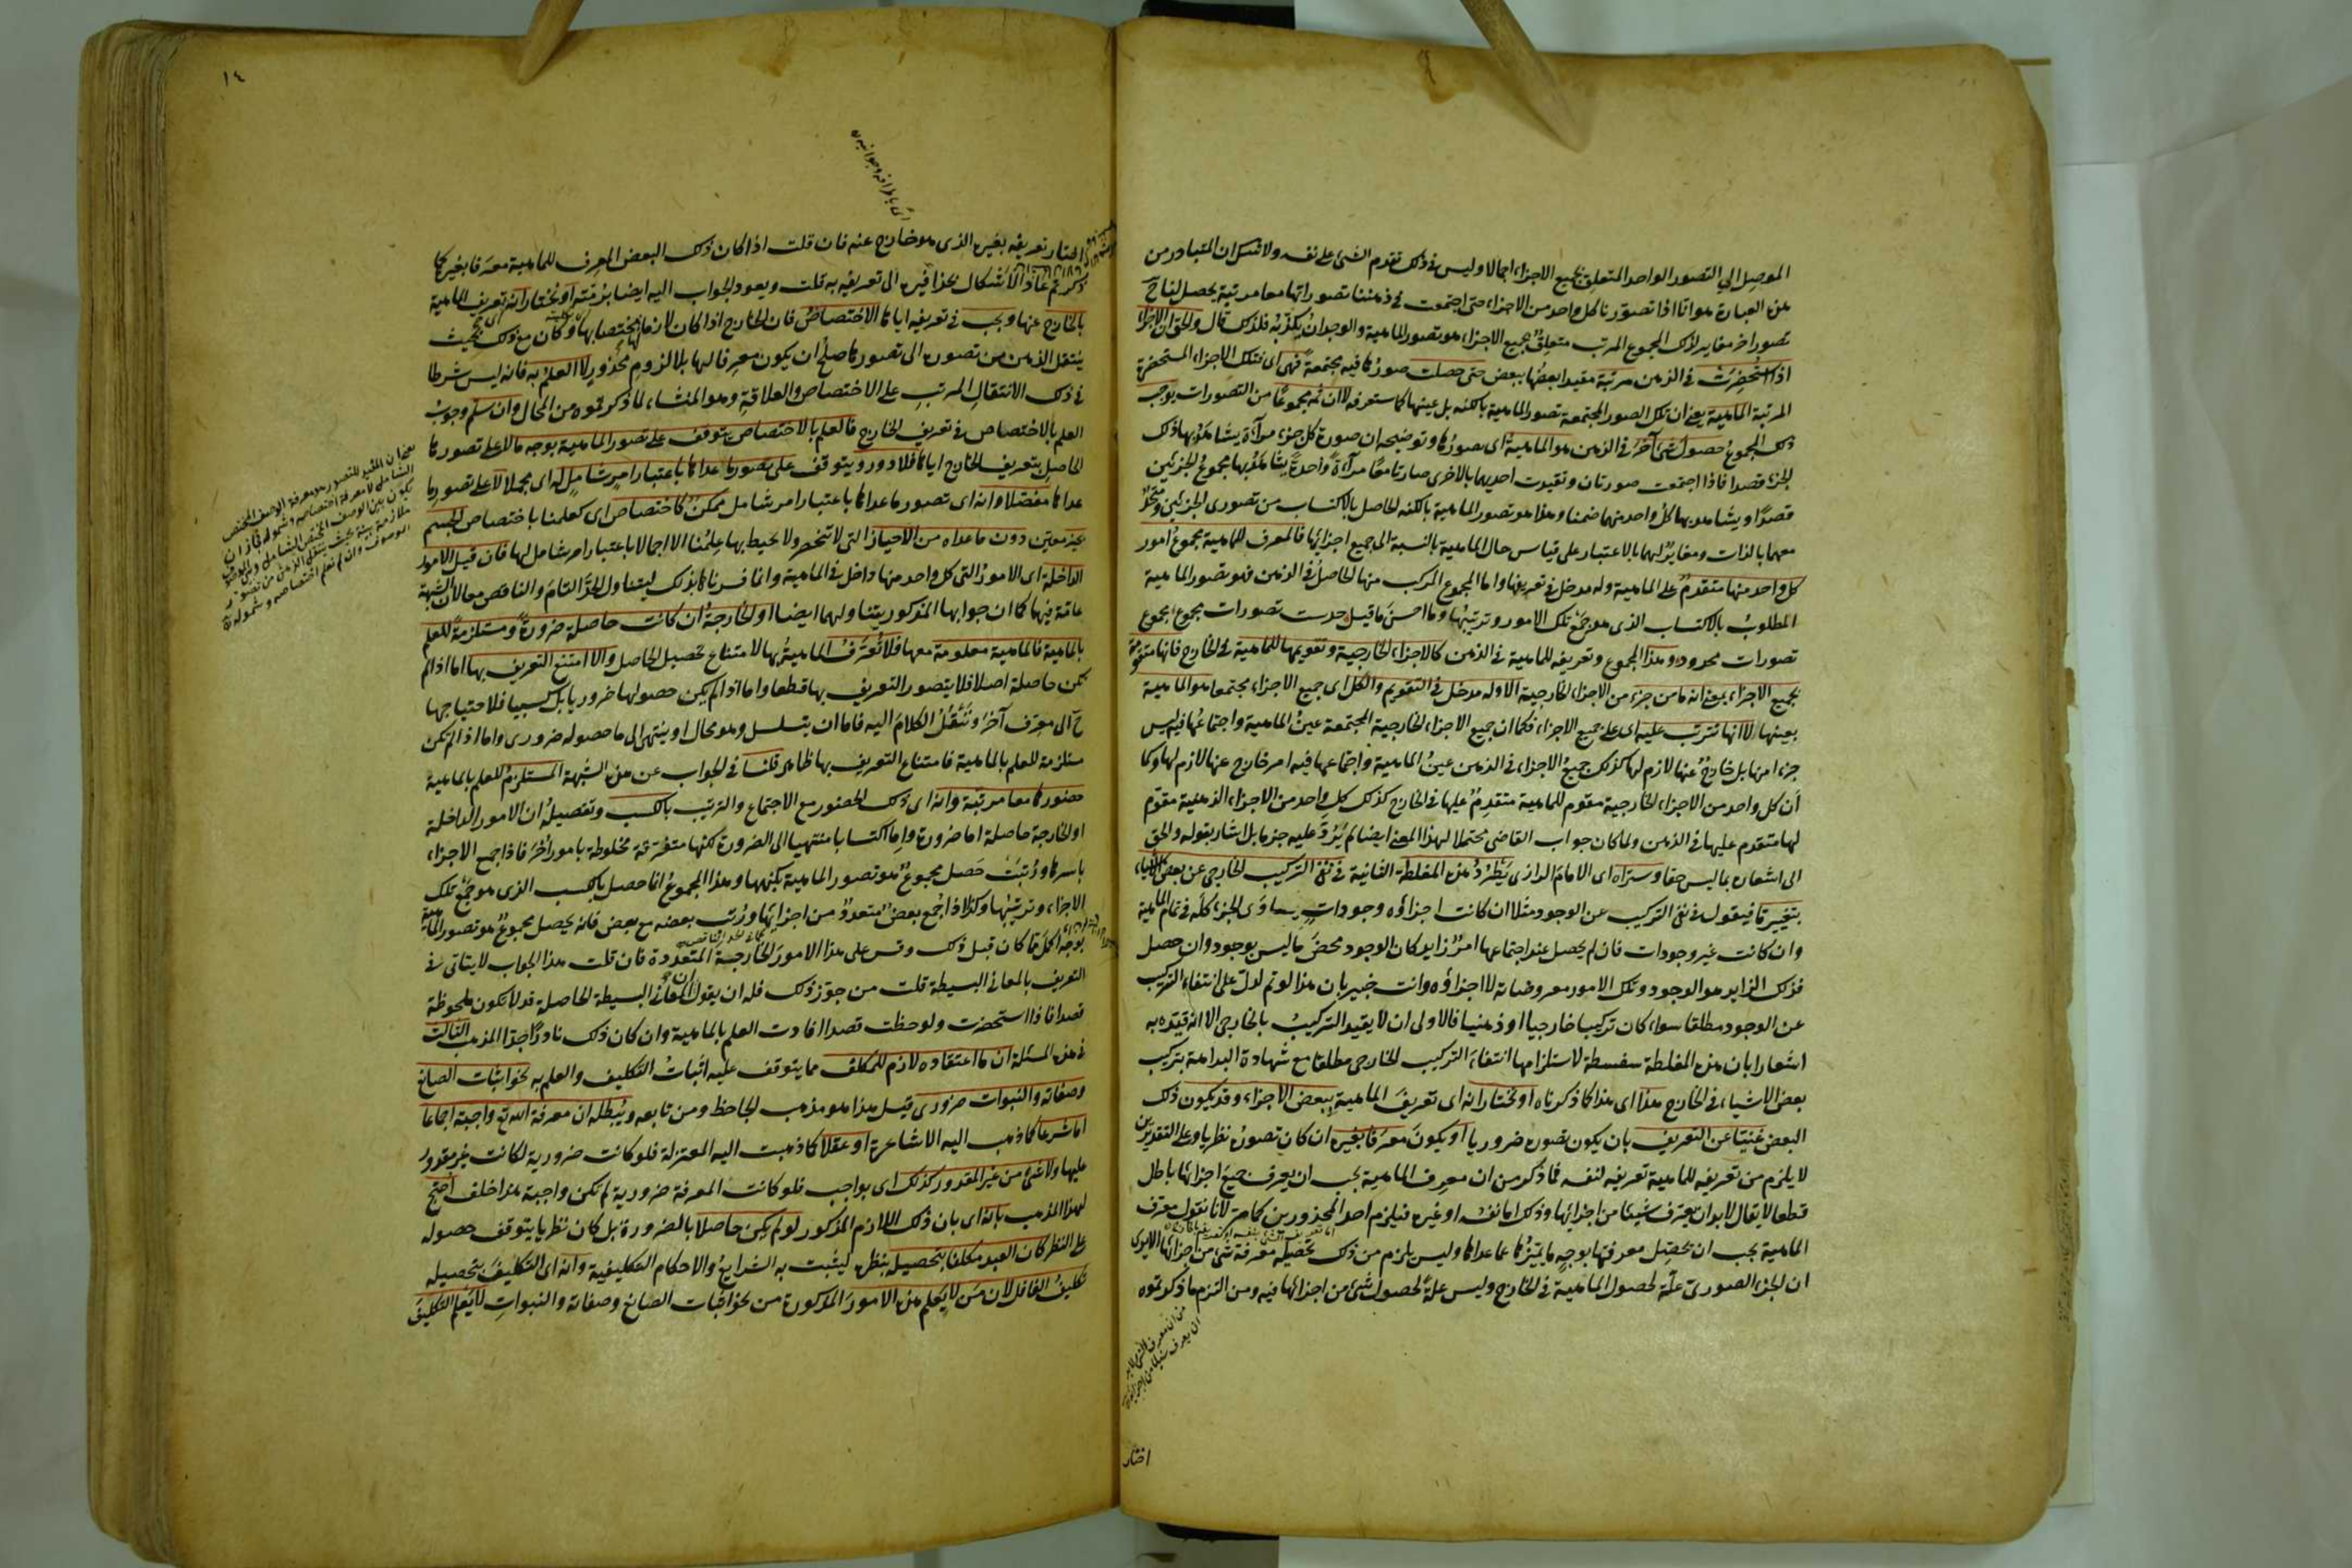 الموصل الي التصور الواحد المتعلق بجميع الاجزاء اجمالا وليس في ذلك تقدم الشئ على نفسه ولا شك ان المتبادر من
هذه العبارة هو انا اذا تصورنا كل واحد من الاجزاء حتى اجتمعت في ذهننا تصوراتها معا مرتبة يحصل لنا ح
تصور اخر مغاير لذلك المجموع المرتب متعلق بجميع الاجزاء هو تصور الماهية والوجدان يكذبه فلذلك قال والحق ان الاجزاء
اذا استحضرت في الذهن مرتبة مقيدا بعضها ببعض حتى حصلت صورها فيه مجتمعة فهى اى فتلك الاجزاء المستحضرة
المرتبة الماهية يعنى ان تلك الصور المجتمعة تصور الماهية بالكنه بل عينها كما ستعرفه لا ان ثمه مجموعا من التصورات يوجب
ذلك المجموع حصول شئ آخر في الذهن هو الماهية اى تصورها وتوضيحه ان صورة كل جزء مرآة يشاهد بها ذلك
الجزء قصدا فاذا اجتمعت صورتان وتقيدت احديهما بالاخرى صارتا معا مرآة واحدة يشاهد بها مجموع الجزئين
قصدا ويشاهد بها كل واحد منهما ضمنا وهذا هو تصور الماهية بالكنه الحاصل بالاكتساب من تصورى الجزئين ومتحد
معهما بالذات ومغاير لهما بالاعتبار على قياس حال الماهية بالنسبة الى جميع اجزائها فالمعرف للماهية مجموع امور
كل واحد منها متقدم على الماهية وله مدخل في تعريفها واما المجموع المركب منها الحاصل في الذهن فهو تصور الماهية
المطلوب بالاكتساب الذى هو جمع تلك الامور وترتيبها وما احسن ما قيل حدست تصورات مجموع مجموع
تصورات محدود وهذا المجموع وتعريفه للماهية في الذهن كالاجزاء الخارجية وتقويمها للماهية في الخارج فانها متقومة
بجميع الاجزاء بمعنى انه ما من جزء من الاجزاء الخارجية الا وله مدخل في التقويم والكل اى جميع الاجزاء مجتمعا هو الماهية
بعينها لا انها تترتب عليه اى على جميع الاجزاء فكما ان جميع الاجزاء الخارجية المجتمعة عين الماهية واجتماعها فيه ليس
جزءا منها بل خارج عنها لازم لها كذلك جميع الاجزاء في الذهن عين الماهية واجتماعها فيه امر خارج عنها لازم لها وكما
ان كل واحد من الاجزاء الخارجية مقوم للماهية متقدم عليها في الخارج كذلك كل واحد من الاجزاء الذهنية مقوم
لها متقدم عليها في الذهن ولما كان جواب القاضى محتملا لهذا المعنى ايضا لم يرد عليه جزما بل اشار بقوله والحق
الى اشعاره بما ليس حقا وستراه اى الامام الرازى يطرد هذه المغلطة الثانية في نفى التركيب الخارجى عن بعض الاشياء
بتغيير ما فيقول في نفى التركيب عن الوجود مثلا ان كانت اجزاؤه وجودات يساوى الجزء كله في تمام الماهية
وان كانت غير وجودات فان لم يحصل عند اجتماعها امر زايد كان الوجود محض ما ليس بوجود وان حصل
فذلك الزايد هو الوجود وتلك الامور معروضاته لا اجزاؤه وانت خبير بان هذا لو تم لدل على انتفاء التركيب
عن الوجود مطلقا سواء كان تركيبا خارجيا او ذهنيا فالاولى ان لا يقيد التركيب بالخارجى الا انه قيده به
اشعارا بان هذه المغلطة سفسطة لاستلزامها انتفاء التركيب الخارجى مطلقا مع شهادة البداهة بتركيب
بعض الاشياء في الخارج هذا اى هذا كما ذكرناه او نختار انه اى تعريف الماهية ببعض الاجزاء وقد يكون ذلك
البعض غنيا عن التعريف بان يكون تصوره ضروريا او يكون معرفا بغيره ان كان تصوره نظريا وعلى التقديرين
لا يلزم من تعريفه للماهية تعريفه لنفسه فما ذكر من ان معرف الماهية يجب ان يعرف جميع اجزائها باطل
قطعا لا يقال لابد ان يعرف شيئا من اجزائها وذلك اما نفسه او غيره فيلزم احد المحذورين كما مر لانا نقول معرف
الماهية يجب ان يحصل معرفتها بوجه ما يميزها عما عداها وليس يلزم من ذلك تحصيله معرفة شئ من اجزائها الا يرى
ان الجزء الصورى علة لحصول الماهية في الخارج وليس علة لحصول شئ من اجزائها فيه ومن التزم ما ذكرتموه
من ان معرف الشئ لابد
ان يعرف شيئا من اجزائه
اختار
١٤
اى باطرافه وجوانبه
اختار تعريفه بغيره الذى هو خارج عنه فان قلت اذا كان ذلك البعض المعرف للماهية معرفا بغيره كما
ذكرتم عاد الاشكال بحذافيره الى تعريفه به قلت ويعود الجواب اليه ايضا برمته او نختار انه تعريف الماهية
بالخارج عنها ويجب في تعريفه اياها الاختصاص فان الخارج اذا كان لازما لها مختصا بها وكان مع ذلك بحيث
ينتقل الذهن من تصوره الى تصورها صلح ان يكون معرفا لها بلا لزوم محذور لا العلم به فانه ليس شرطا
في ذلك الانتقال المرتب على الاختصاص والعلاقة وهو المنشاء لما ذكرتموه من المحال وان سلم وجوب
العلم بالاختصاص في تعريف الخارج فالعلم بالاختصاص يتوقف على تصور الماهية بوجه ما لا على تصورها
الحاصل بتعريف الخارج اياها فلا دور ويتوقف على تصور ما عداها باعتبار امر شامل له اى مجملا لا على تصور ما
عداها مفصلا وانه اى تصور ما عداها باعتبار امر شامل ممكن كاختصاص اى كعلمنا باختصاص الجسم
بحيز معين دون ما عداه من الاحياز التى لا تنحصر ولا يحيط بها علمنا الا اجمالا باعتبار امر شامل لها فان قيل الامور
الداخلة اى الامور التى كل واحد منها داخل في الماهية وانما فسرناها بذلك ليتناول الحد التام والناقص معا لان الشبهة
عامة فيها كما ان جوابها المذكور يتناولهما ايضا او الخارجة ان كانت حاصلة ضرورة ومستلزمة للعلم
بالماهية فالماهية معلومة معها فلا تعرف الماهية بها لامتناع تحصيل الحاصل والا امتنع التعريف بها اما اذا لم
تكن حاصلة اصلا فلا يتصور التعريف بها قطعا واما اذا لم يكن حصولها ضروريا بل كسبيا فلاحتياجها
ح الى معرف آخر وننقل الكلام اليه فاما ان يتسلسل وهو محال او ينتهى الى ما حصوله ضرورى واما اذا لم تكن
مستلزمة للعلم بالماهية فامتناع التعريف بها ظاهر قلنا في الجواب عن هذه الشبهة المستلزم للعلم بالماهية
حضورها معا مرتبة وانه اى ذلك الحضور مع الاجتماع والترتيب بالكسب وتفصيله ان الامور الداخلة
او الخارجة حاصلة اما ضرورة واما اكتسابا منتهيا الى الضرورة لكنها متفرقة مخلوطة بامور أخر فاذا جمع الاجزاء
باسرها ورتبت حصل مجموع هو تصور الماهية بكنهها وهذا المجموع انما حصل بالكسب الذى هو جمع تلك
الاجزاء وترتيبها وكذا اذا جمع بعض متعدد من اجزائها ورتب بعضه مع بعض فانه يحصل مجموع هو تصور الماهية
بوجه اكمل مما كان قبل ذلك وقس على هذا الامور الخارجة المتعددة فان قلت هذا الجواب لا يتاتى في
التعريف بالمعانى البسيطة قلت من جوز ذلك فله ان يقول ان المعانى البسيطة الحاصلة قد لا تكون ملحوظة
قصدا فاذا استحضرت ولوحظت قصدا افادت العلم بالماهية وان كان ذلك نادرا جدا المذهب الثالث
في هذه المسئلة ان ما اعتقاده لازم للمكلف مما يتوقف عليه اثبات التكليف والعلم به نحو اثبات الصانع
وصفاته والنبوات ضرورى قيل هذا هو مذهب الجاحظ ومن تابعه ويبطله ان معرفة الله تع واجبة اجماعا
اما شرعا كما ذهب اليه الاشاعرة او عقلا كما ذهبت اليه المعتزلة فلو كانت ضرورية لكانت غير مقدور
عليها ولا شئ من غير المقدور كذلك اى بواجب فلو كانت المعرفة ضرورية لم تكن واجبة هذا خلف احتج
لهذا المذهب بانه اى بان ذلك اللازم المذكور لو لم يكن حاصلا بالضرورة بل كان نظريا يتوقف حصوله
على النظر كان العبد مكلفا بتحصيله بنظره ليثبت به الشرايع والاحكام التكليفية وانه اى التكليف بتحصيله
تكليف الغافل لان من لا يعلم هذه الامور المذكورة من نحو اثبات الصانع وصفاته والنبوات لا يعلم التكليف
يعنى ان المفيد للتصور هو معرفة الوصف المختص
الشامل لا معرفة اختصاصه وشموله فجاز ان
يكون بين الوصف المختص الشامل وبين الموصوف
ملازمة بينة بحيث ينتقل الذهن من تصوره
الموصوف وان لم نعلم اختصاصه وشموله